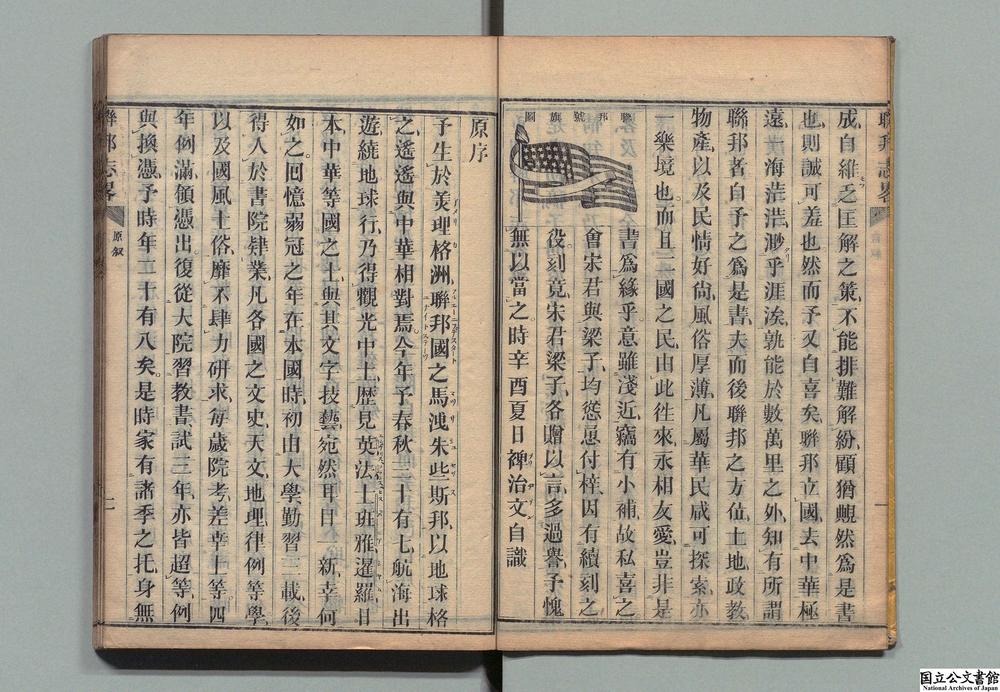 聯邦志畧
一
成自維乏匡解之策不能排難解紛顧猶靦然爲是書
也則誠可羞也然而予又自喜矣聯邦立國去中華極
遠滄海茫茫渺乎涯涘孰能於數萬里之外知有所謂
聯邦者自予之爲是書夫而後聯邦之方位土地政教
物產以及民情好尙風俗厚薄凡屬華民咸可探索亦
一樂境也而且二國之民由此往來永相友愛豈非是
聯邦號旗圖
書爲緣乎意雖淺近竊有小補故私喜之
會宋君與梁子均慫恿付梓因有續刻之
役刻竟宋君梁子各贈以言多過譽予愧
無以當之時辛酉夏日裨治文自識
原序
予生於美理格洲聯邦國之馬洩朱些斯邦以地球格
之遙遙與中華相對焉今年予春秋三十有七航海出
遊繞地球行乃得觀光中土歷見英法士班雅暹羅日
本中華等國之士與其文字技藝宛然耳目一新幸何
如之囘憶弱冠之年在本國時初由大學勤習三載後
得入於書院肄業凡各國之文史天文地理律例等學
以及國風土俗靡不肆力研求每歲院考差幸上等四
年例滿領憑出復從大院習教書試三年亦皆超等例
與換憑予時年二十有八矣是時家有諸季之托身無
聯邦志畧
原叙
一
国立公文書館
National Archives of Japan